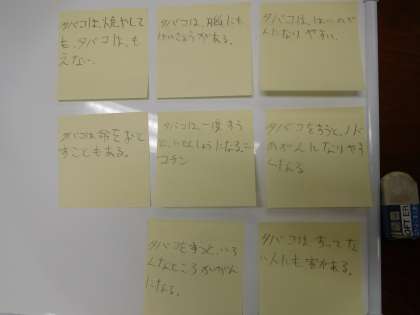 タバコは、燃やして
も、タバコは、も
えない。
タバコは、脳にも
えいきょうがある。
タバコは、はいのが
んになりやすい。
タバコは命をおと
すこともある。
タバコは、一度すう
と、いぞんしょうになる=
コチン
タバコをすうと、ノド
のがんになりやす
くなる
タバコをすうと、いろ
んなところがんが
になる。
タバコは、すってな
い人にも害がある。